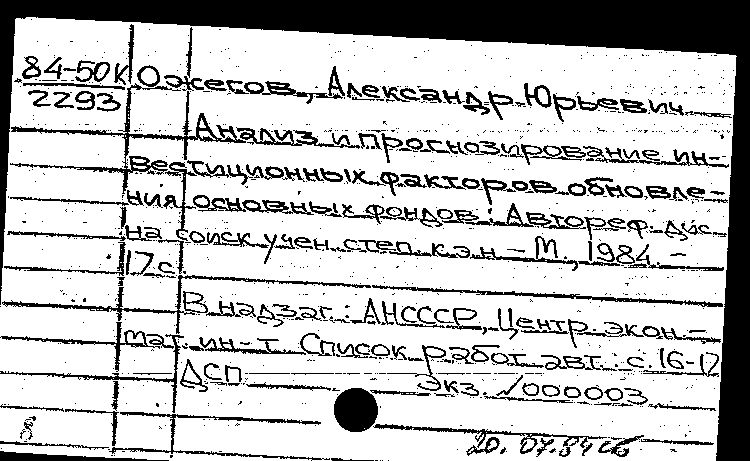 84-50К Ожегов, Александр Юрьевич
2293
Анализ и прогнозирование ин-
вестиционных факторов обновле-
ния основных фондов: Автореф. дис.
на соиск учен. степ. к.э.н – М., 1984. –
17 с.
В надзаг.: АН СССР, Центр. экон.-
мат. ин-т. Список работ авт.: с. 16-17
ДСП Экз. √000003
8 20. 07.84